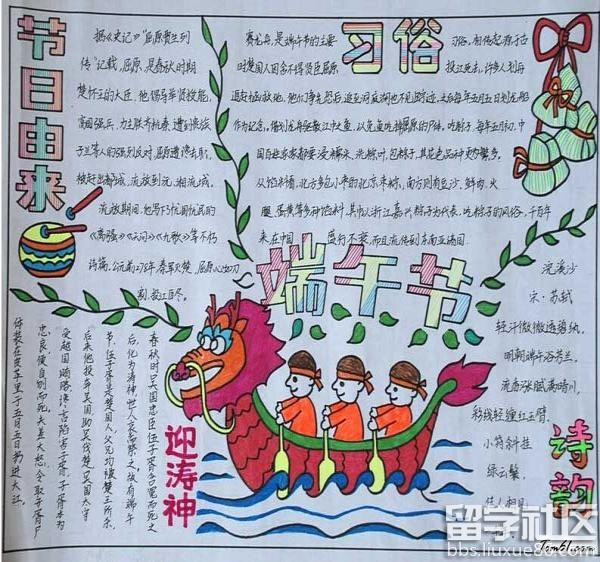 节日由来
据《史记》"屈原贾生列
传"记载,屈原,是春秋时期
楚怀王的大臣。他倡导举贤授能,
富国强兵,力主联齐抗秦,遭到贵族
子兰等人的强烈反对,屈原遭馋去职,
被赶出都城,流放到沅、湘流域。
流放期间,他写下忧国忧民的
《离骚》《天问》《九歌》等不朽
诗篇,公元前278年,秦军灭楚,屈原心如刀
割,投江自尽。
习俗
赛龙舟,是端午节的主要
习俗,相传起源于古
时楚国人因舍不得贤臣屈原
投江死去,许多人划船
追赶拯救他。他们争先恐后,追至洞庭湖时不见踪迹,之后每年五月五日划龙舟
作为纪念。借划龙舟驱散江中之鱼,以免鱼吃掉屈原的尸体。吃粽子,每年五月初,中
国百姓家家都要浸糯米、洗粽叶、包粽子,其花色品种更为繁多。
从馅料看,北方多包小枣的北京枣粽,南方则有豆沙、鲜肉、火
腿、蛋黄等多种馅料,其中以浙江嘉兴粽子为代表。吃粽子的风俗,千百年
来在中国 盛行不衰,而且流传到东南亚诸国
端午节
浣溪沙
宋·苏轼
轻汗微微透碧纨,
明朝端午浴芳兰。
流香涨腻满晴川。
彩线轻缠红玉臂,
小符斜挂
绿云鬟。
佳人相见
诗韵
迎涛神
春秋时吴国忠臣伍子胥含冤而死之
后,化为涛神,世人哀而祭之,故有端午
节。伍子胥是楚国人,父兄均被楚王所杀,
后来他投奔吴国,助吴伐楚。吴国太宰
受越国贿赂,谗言陷害子胥,子胥本为
忠良,便自刎而死,夫差大怒,令取子胥尸
体装在皮革里于五月五日扔进大江。
留学社区
bbs.liuxue86.com